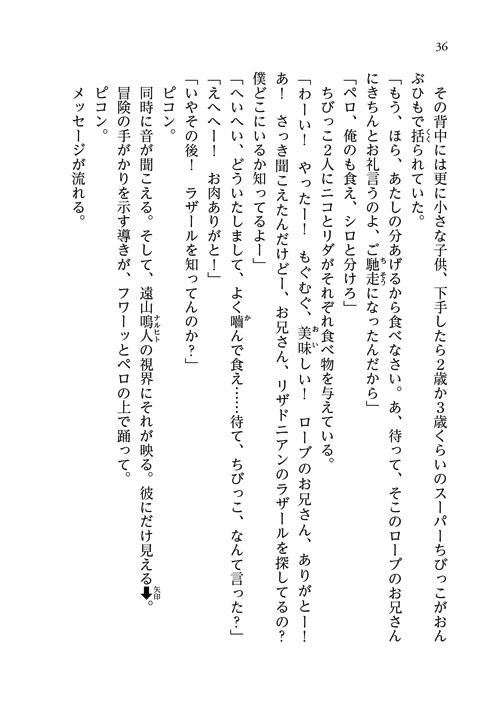 36
その背中には更に小さな子供、下手したら2歳か3歳くらいのスーパーちびっこがおん
ぶひもで括られていた。
「もう、ほら、あたしの分あげるから食べなさい。あ、待って、そこのローブのお兄さん
にきちんとお礼言うのよ、ご馳走になったんだから」
「ペロ、俺のも食え、シロと分けろ」
ちびっこ2人にニコとリダがそれぞれ食べ物を与えている。
「わーい！　やったー！　もぐむぐ、美味しい！　ローブのお兄さん、ありがとー！
あ！　さっき聞こえたんだけどー、お兄さん、リザドニアンのラザールを探してるの？
僕どこにいるか知ってるよー」
「へいへい、どういたしまして、よく嚙んで食え……待て、ちびっこ、なんて言った？」
「えへへー！　お肉ありがと！」
「いやその後！　ラザールを知ってんのか？」
ピコン。
同時に音が聞こえる。そして、遠山鳴人の視界にそれが映る。彼にだけ見える⬇。
冒険の手がかりを示す導きが、フワーッとペロの上で踊って。
ピコン。
メッセージが流れる。